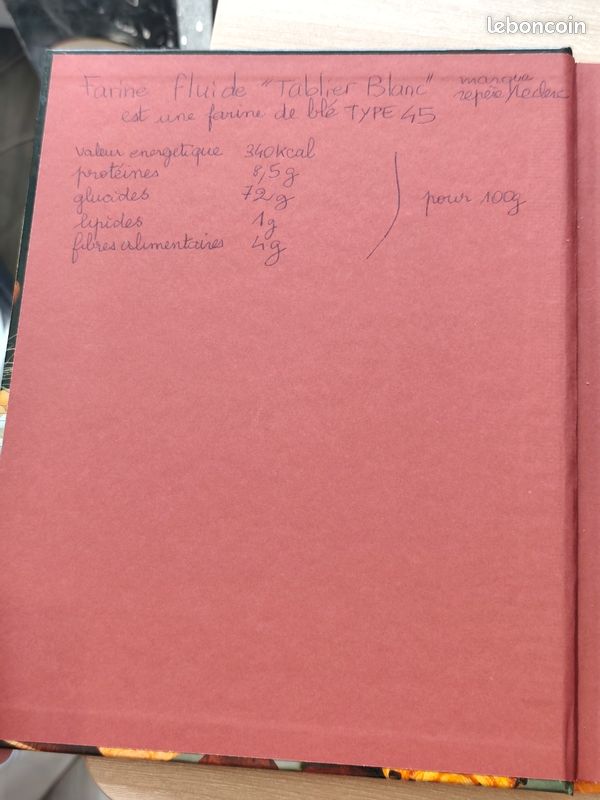 leboncoin
Farine fluide "Tablier Blanc" marque
repère/Leclerc
est une farine de blé TYPE 45
valeur energétique 340kcal
protéines 8,5g
glucides 72g
lipides 1g
fibres alimentaires 4g
pour 100g